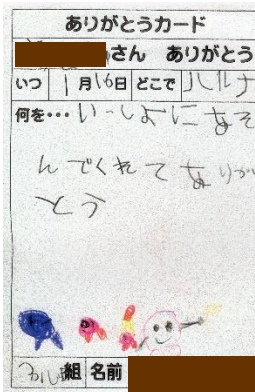 ありがとうカード
さん ありがとう
いつ 1月16日 どこで ハルナ
何を・・・いっしょにあそ
んでくれてありが
とう
組 名前